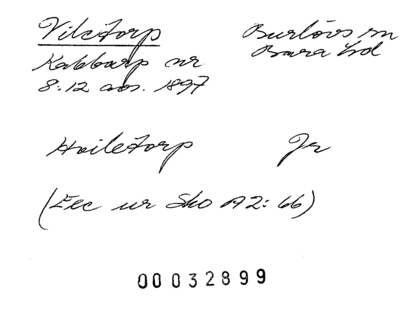 Viletorp Burlövs sn
Kabbarp nr Bara hd
8:12 avs. 1897
Hviletorp Jr
(Exc ur Sko A2: 66)
00032899